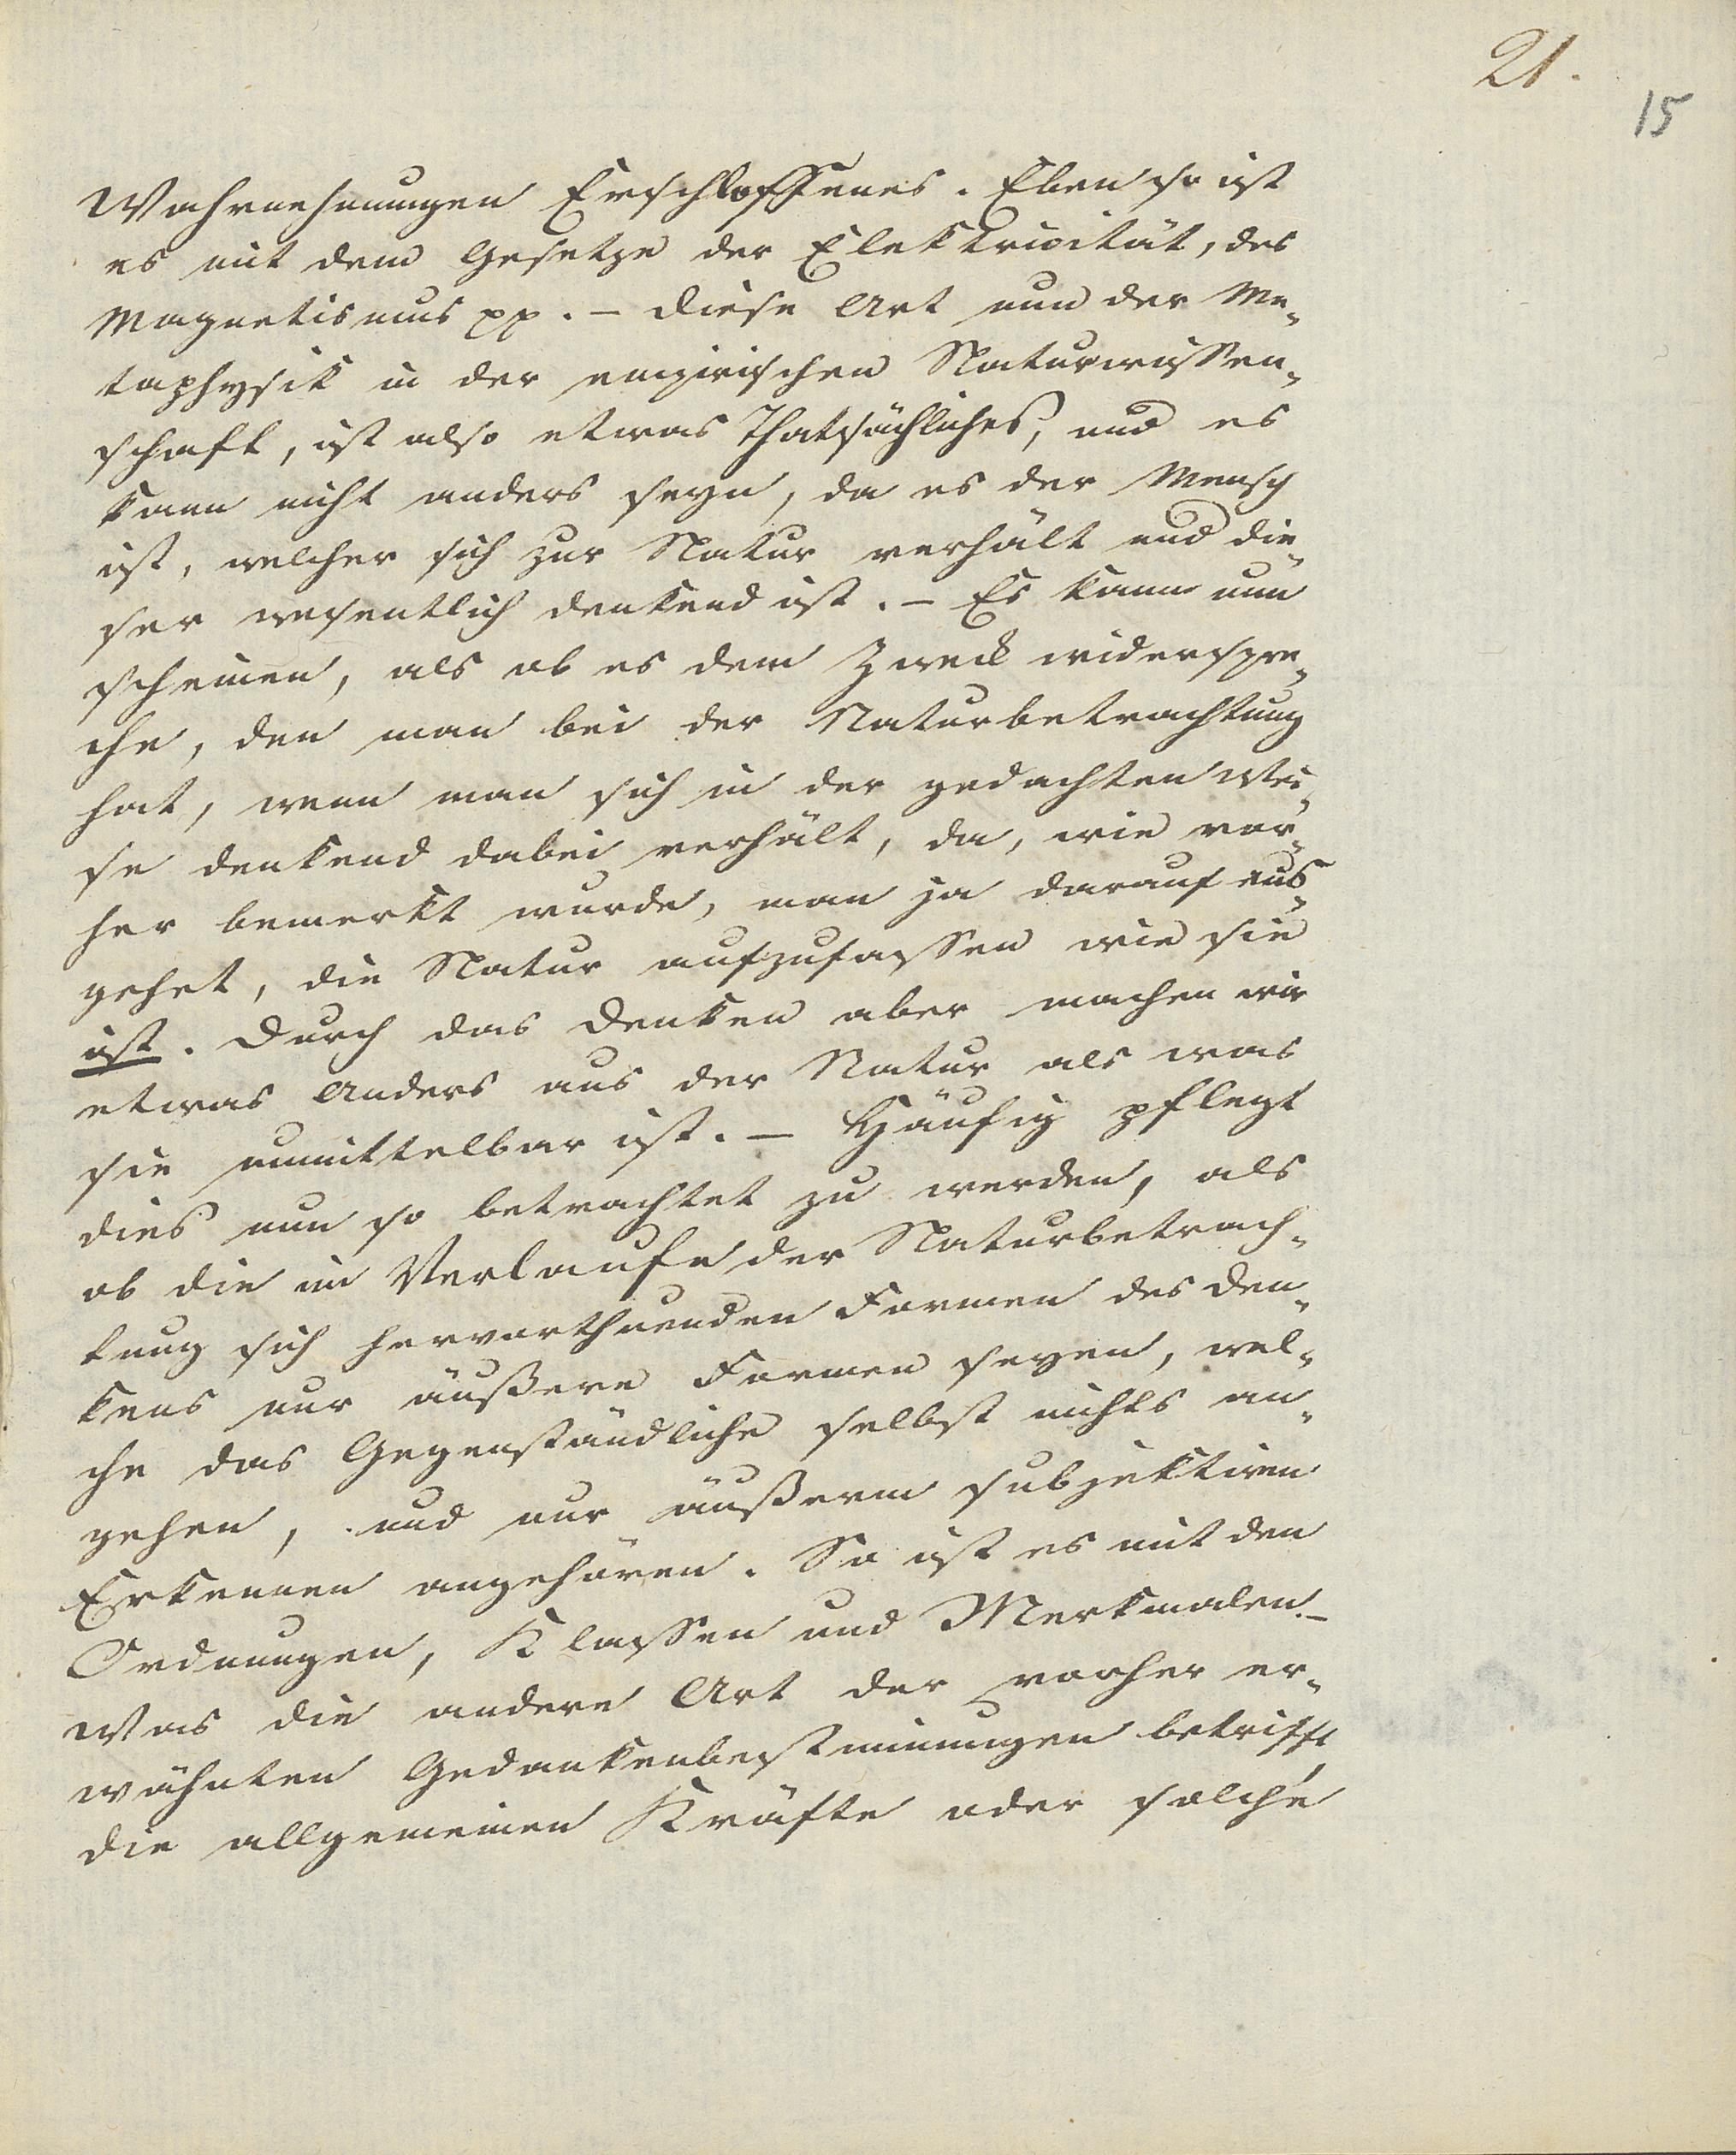 21.
15
Wahrnehmungen Erschlossenes. Eben so ist
es mit dem Gesetze der Elektricität, des
Magnetismus pp. – Diese Art nun der Me-
taphysik in der empirischen Naturwissen-
schaft, ist also etwas Thatsächliches, und es
kann nicht anders seyn, da es der Mensch
ist, welcher sich zur Natur verhält und die-
ser wesentlich denkend ist. – Es kann nun
scheinen, als ob es dem Zweck widerspre-
che, den man bei der Naturbetrachtung
hat, wenn man sich in der gedachten Wei-
se denkend dabei verhält, da, wie vor-
her bemerkt wurde, man ja darauf aus-
gehet, die Natur aufzufassen wie sie
ist. Durch das Denken aber machen wir
etwas Anders aus der Natur als was
sie unmittelbar ist. – Häufig pflegt
dies nun so betrachtet zu werden, als
ob die im Verlaufe der Naturbetrach-
tung sich hervorthuenden Formen des Den-
kens nur äußere Formen seyen, wel-
che das Gegenständliche selbst nichts an-
gehen, und nur äußerm subjektiven
Erkennen angehören. So ist es mit den
Ordnungen, Klassen und Merkmalen. –
Was die andere Art der vorher er-
wähnten Gedankenbestimmungen betrifft,
die allgemeinen Kräfte oder solche